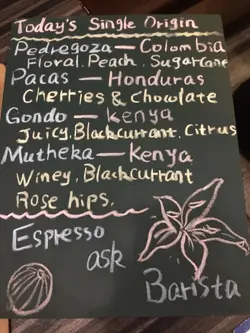 Today's Single Origin
Pedregoza — Colombia
Floral, Peach, Sugarcane
Pacas — Honduras
Cherries & Chocolate
Gondo — Kenya
Juicy, Blackcurrant, Citrus
Mutheka — Kenya
Winey, Blackcurrant
Rose hips.
Espresso
ask
Barista